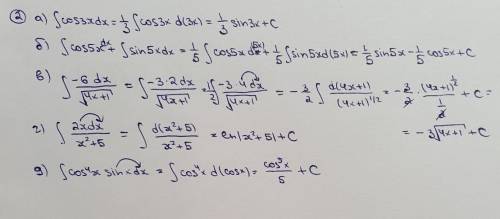 ② а) ∫cos3xdx = 1/3 ∫cos3x d(3x) = 1/3 sin3x + C
б) ∫cos5x dx + ∫sin5x dx = 1/5 ∫cos5x d(5x) + 1/5 ∫sin5x d(5x) = 1/5 sin5x - 1/5 cos5x + C
в) ∫ -6dx/√(4x+1) = ∫ -3·2dx/√(4x+1) = 1/2 ∫ -3·4dx/√(4x+1) = -3/2 ∫ d(4x+1)/(4x+1)^(1/2) = -3/2 · (4x+1)^(1/2)/(1/2) + C =
= -3√(4x+1) + C
г) ∫ 2xdx/(x²+5) = ∫ d(x²+5)/(x²+5) = ln|x²+5| + C
д) ∫cos⁴x sinx dx = ∫cos⁴x d(cosx) = cos⁵x/5 + C